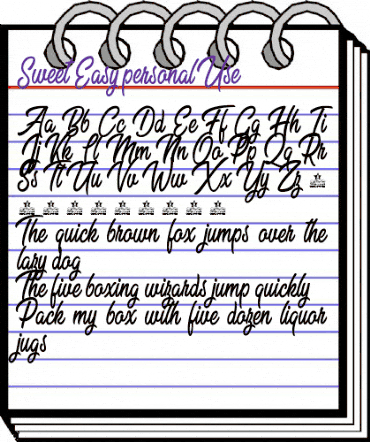 Sweet Easy personal Use
Aa Bb Cc Dd Ee Ff Gg Hh Ii
Jj Kk Ll Mm Nn Oo Pp Qq Rr
Ss Tt Uu Vv Ww Xx Yy Zz
The quick brown fox jumps over the
lazy dog
The five boxing wizards jump quickly
Pack my box with five dozen liquor
jugs